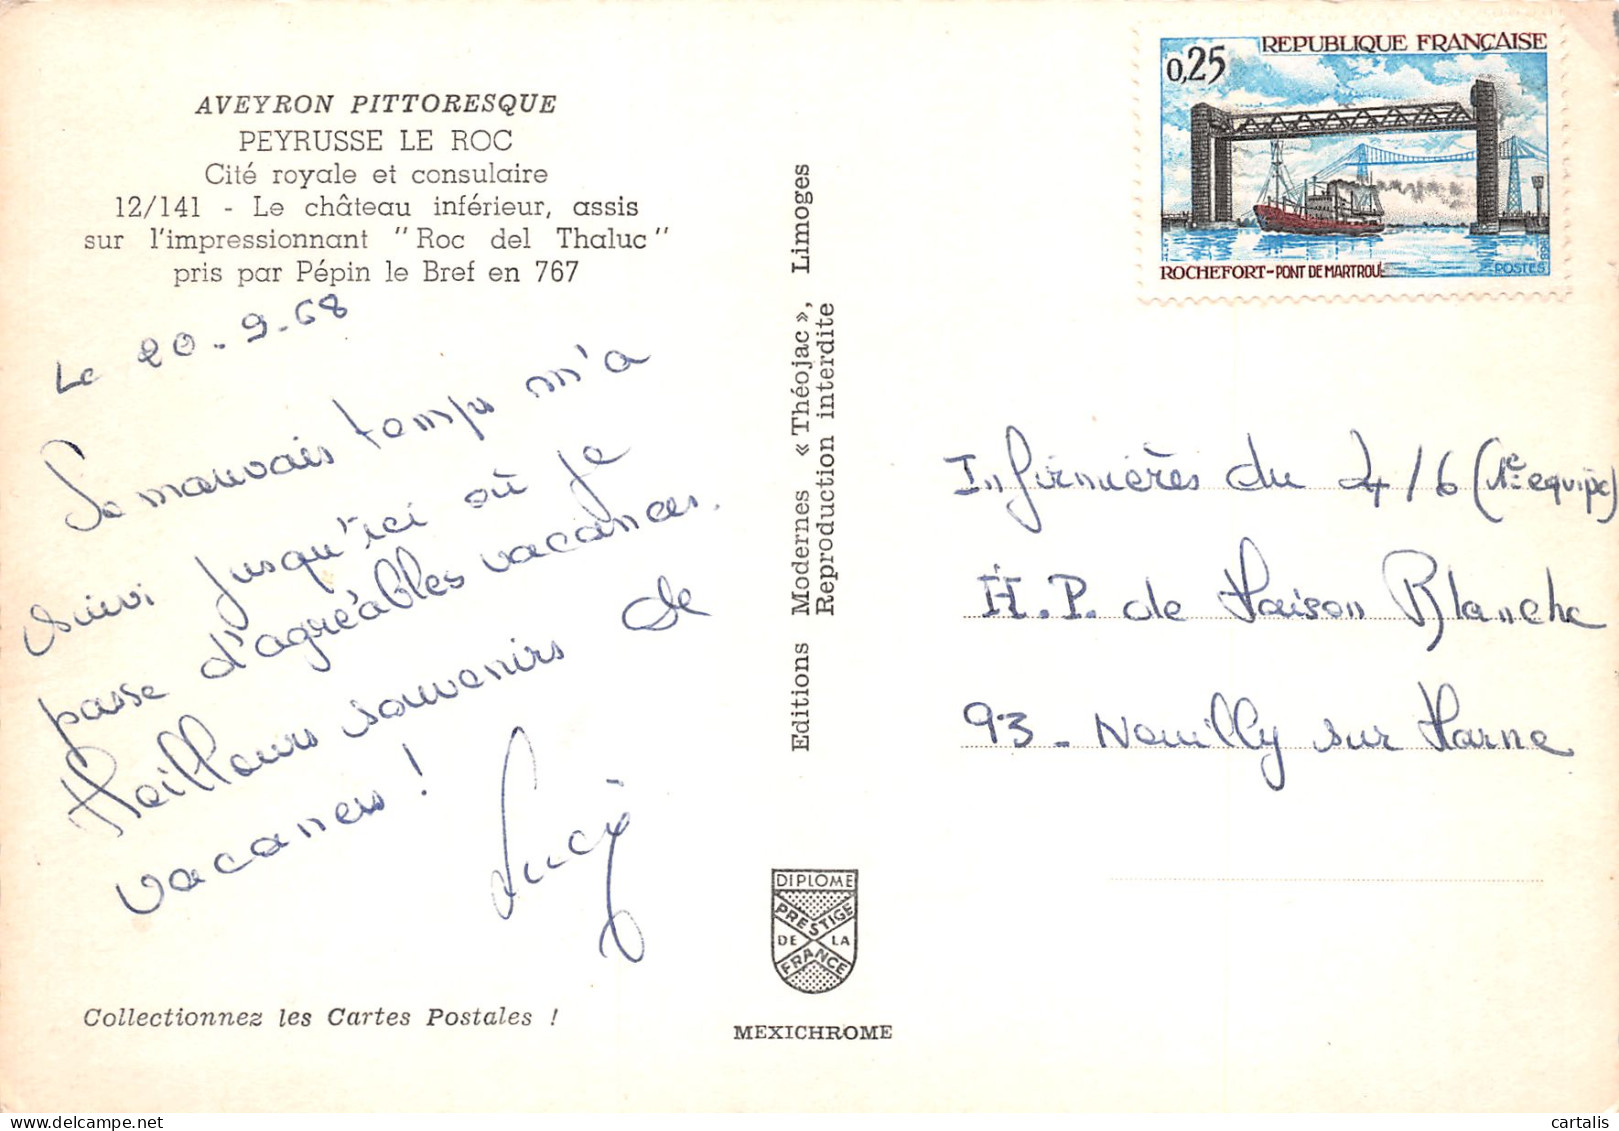 AVEYRON PITTORESQUE
PEYRUSSE LE ROC
Cité royale et consulaire
12/141 - Le château inférieur, assis
sur l'impressionnant "Roc del Thaluc"
pris par Pépin le Bref en 767
Le 20-9-68
Le mauvais temps m'a
suivi jusqu'ici où je
passe d'agréables vacances.
Meilleurs souvenirs de
vacances !
Lucy
Collectionnez les Cartes Postales !
Editions Modernes « Théojac », Limoges
Reproduction interdite
DIPLOME
PRESTIGE
DE LA
FRANCE
MEXICHROME
0,25 REPUBLIQUE FRANÇAISE
ROCHEFORT-PONT DE MARTROU
POSTES
1968
Infirmières du 4/6 (1e equipe)
H.P. de Maison Blanche
93 - Neuilly sur Marne
cartalis